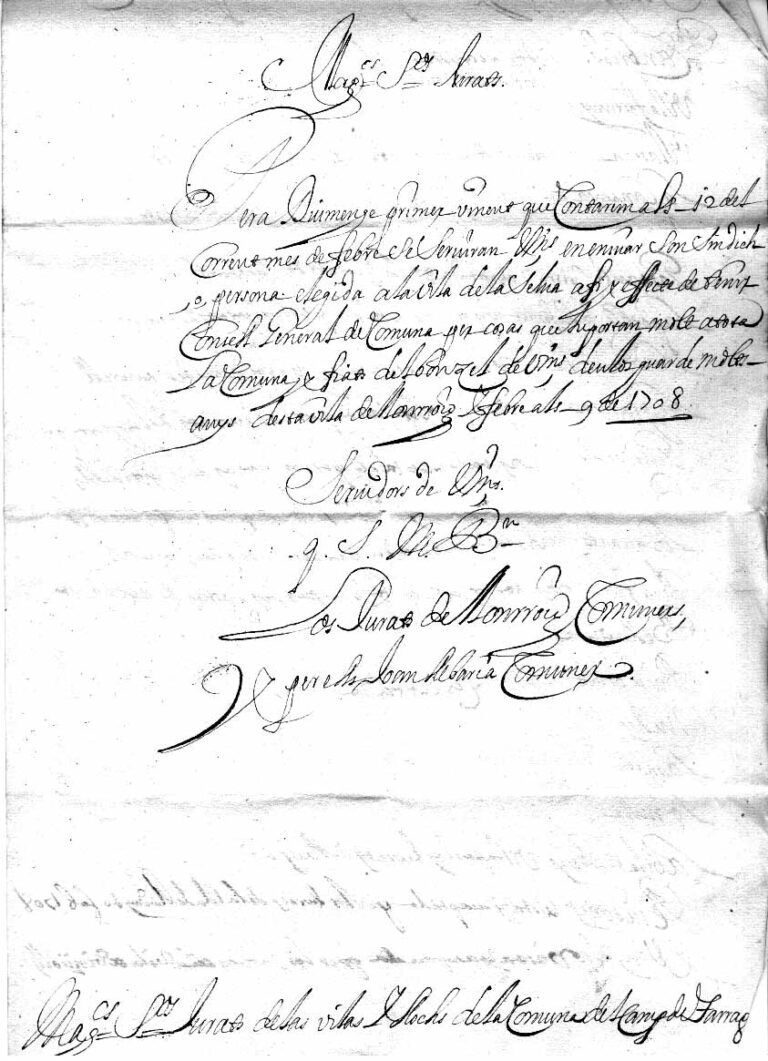 Magcs Srs Jurats.
Pera Diumenge primer vinent que Contarem als 12 del
Corrent mes de febre se Serviran Vms en enviar son Sindich
o, persona elegida a la vila de la Selva a fi y effecte de tenir
Consell General de Comuna per cosas que importan molt a tota
La Comuna, y fiats del bon zel de Vms deu los guarde molts
anys desta vila de Monroig y febre als 9 de 1708.
Servidors de Vms.
q. S. M. Bn
Los Jurats de Monroig Comuners,
Y per ells Joan Comuner.
Magcs Srs Jurats de las vilas Y llochs de la Comuna del Camp de Tarrag